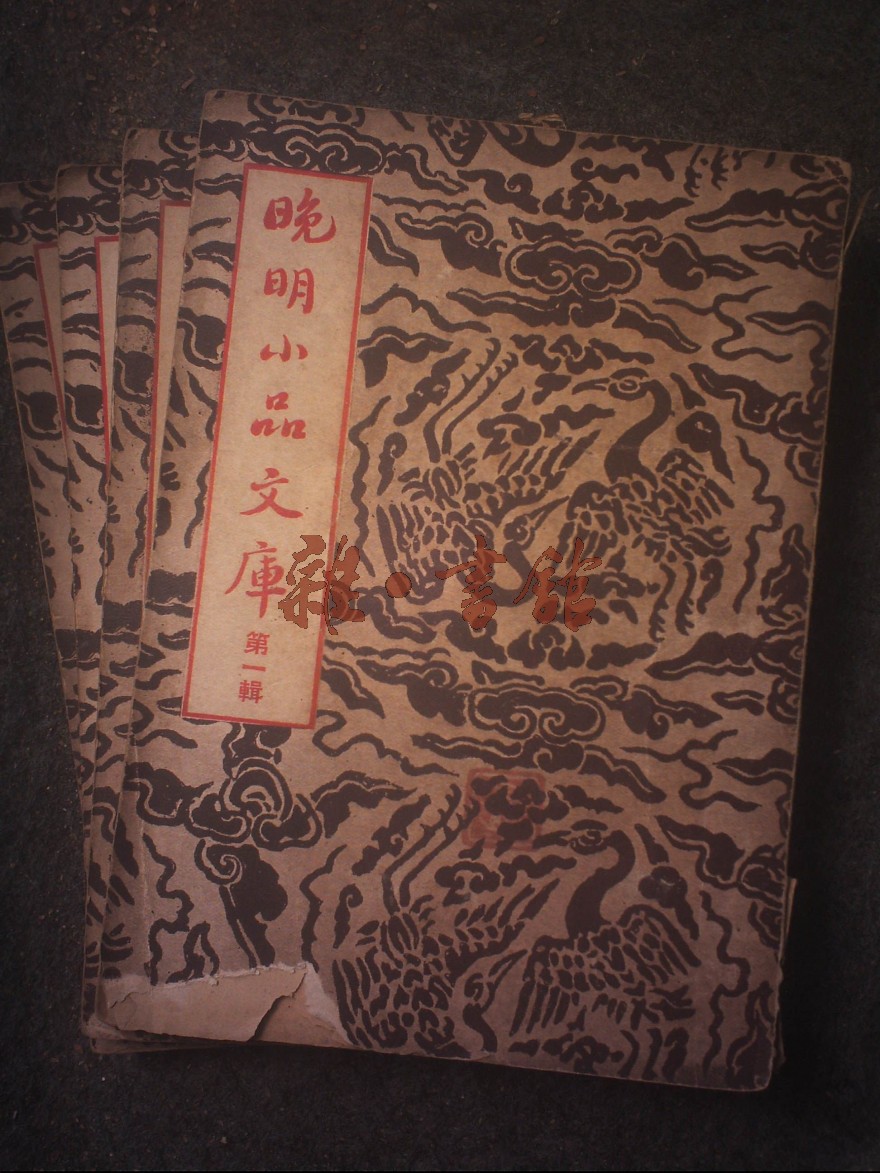 晚明小品文庫
第一輯
雜·書館